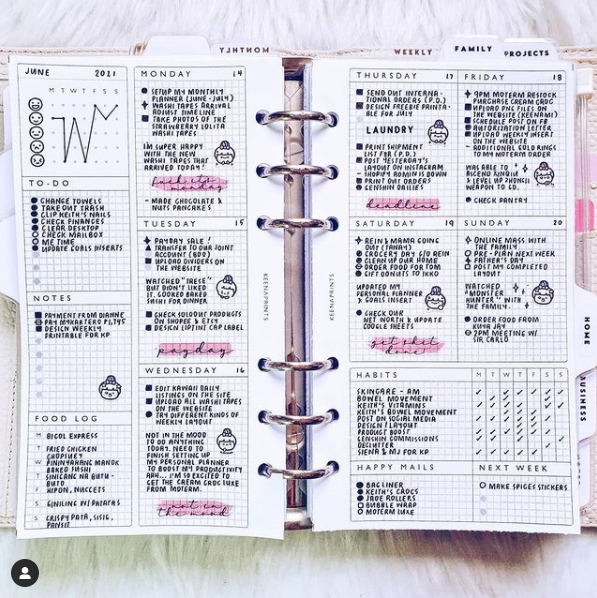 MONTHLY
WEEKLY
FAMILY
PROJECTS
JUNE 2021
M T W T F S S
TO-DO
CHANGE TOWELS
TAKE OUT TRASH
CLIP KEITH'S NAILS
CHECK FINANCES
CLEAR DESKTOP
CHECK MAILBOX
ME TIME
UPDATE GOALS INSERTS
NOTES
PAYMENT FROM DIANNE
PAY MYKARTERO P1,745
DESIGN WEEKLY
PRINTABLE FOR KP
FOOD LOG
M BICOL EXPRESS
T FRIED CHICKEN
CHOPSUEY
W PININYAHANG MANOK
BAKED SUSHI
T SINIGANG NA BUTO-
BUTO
F HIPON, NUGGETS
S GINILING W/ PATATAS
S CRISPY PATA, SISIG,
PANSIT
MONDAY 14
SETUP MY MONTHLY
PLANNER (JUNE-JULY)
WASHI TAPES ARRIVAL
ADJUST TIMELINE
TAKE PHOTOS OF THE
STRAWBERRY LOLITA
WASHI TAPES
I'M SUPER HAPPY
WITH THE NEW
WASHI TAPES THAT
ARRIVED TODAY!
monday
- MADE CHOCOLATE &
NUTS PANCAKES
TUESDAY 15
PAYDAY SALE!
TRANSFER TO OUR JOINT
ACCOUNT (BDO)
UPLOAD DIVIDERS ON
THE WEBSITE
WATCHED "TRESE"
BUT DON'T LIKED
IT. COOKED BAKED
SUSHI FOR DINNER
CHECK SOLDOUT PRODUCTS
ON SHOPEE & ETSY
DESIGN LIPTINT CAP LABEL
payday
WEDNESDAY 16
EDIT KAWAII DAILY
LISTINGS ON THE SITE
UPLOAD ALL WASHI TAPES
ON THE WEBSITE
TRY DIFFERENT KINDS OF
WEEKLY LAYOUT
NOT IN THE MOOD
TO DO ANYTHING
TODAY. NEED TO
FINISH SETTING UP
MY PERSONAL PLANNER
TO BOOST MY PRODUCTIVITY
AHH... I'M SO EXCITED TO
GET THE CREAM CROC LUXE
FROM MOTERM.
not in
the mood
KEENAPRINTS
KEENAPRINTS
THURSDAY 17
SEND OUT INTERNA-
TIONAL ORDERS (P.O.)
DESIGN FREEBIE PRINTA-
BLE FOR JULY
LAUNDRY
PRINT SHIPMENT
LIST FOR (P.O.)
POST YESTERDAY'S
LAYOUT ON INSTAGRAM
- SHOPIFY ADMIN IS DOWN
PRINT OUT ORDERS
GENSHIN DAILIES
deadline
FRIDAY 18
9PM MOTERM RESTOCK
PURCHASE CREAM CROC
UPLOAD PNG FILES ON
THE WEBSITE (KEENAMI)
SCHEDULE POST ON FB
AUTORIZATION LETTER
UPLOAD WEEKLY INSERT
ON THE WEBSITE
- ADDITIONAL GOLD RINGS
TO MY MOTERM ORDER
WAS ABLE TO
ASCEND XINQIU
& LEVEL UP ZHONGLI
WEAPON TO 60.
CHECK PANTRY
SATURDAY 19
REIN & MAMA GOING
OUT (TANAY)
GROCERY DAY C/O REIN
CLEAN UP OUR HOME
ORDER FOOD FOR TOM
GIFT DONUTS TO IKKO
UPDATED MY
PERSONAL PLANNER
& GOALS INSERT
CHECK OUR
NET WORTH & UPDATE
GOOGLE SHEETS
get shit
done
SUNDAY 20
ONLINE MASS WITH
THE FAMILY
PRE-PLAN NEXT WEEK
FATHER'S DAY
POST MY COMPLETED
LAYOUT
WATCHED
"MONSTER
HUNTER" WITH
THE FAMILY.
ORDER FOOD FROM
KUYA JAY
2PM MEETING W/
SIR CARLO
HABITS
M T W T F S S
SKINCARE - AM
BOWEL MOVEMENT
KEITH'S VITAMINS
KEITH'S BOWEL MOVEMENT
POST ON SOCIAL MEDIA
DESIGN / LAYOUT
PRODUCT BOOST
GENSHIN COMMISSIONS
DECLUTTER
SIENA & MJ FOR KP
HAPPY MAILS
BAG LINER
KEITH'S CROCS
JADE ROLLERS
BUBBLE WRAP
MOTERM LUXE
NEXT WEEK
MAKE SPICES STICKERS
HOME
BUSINESS